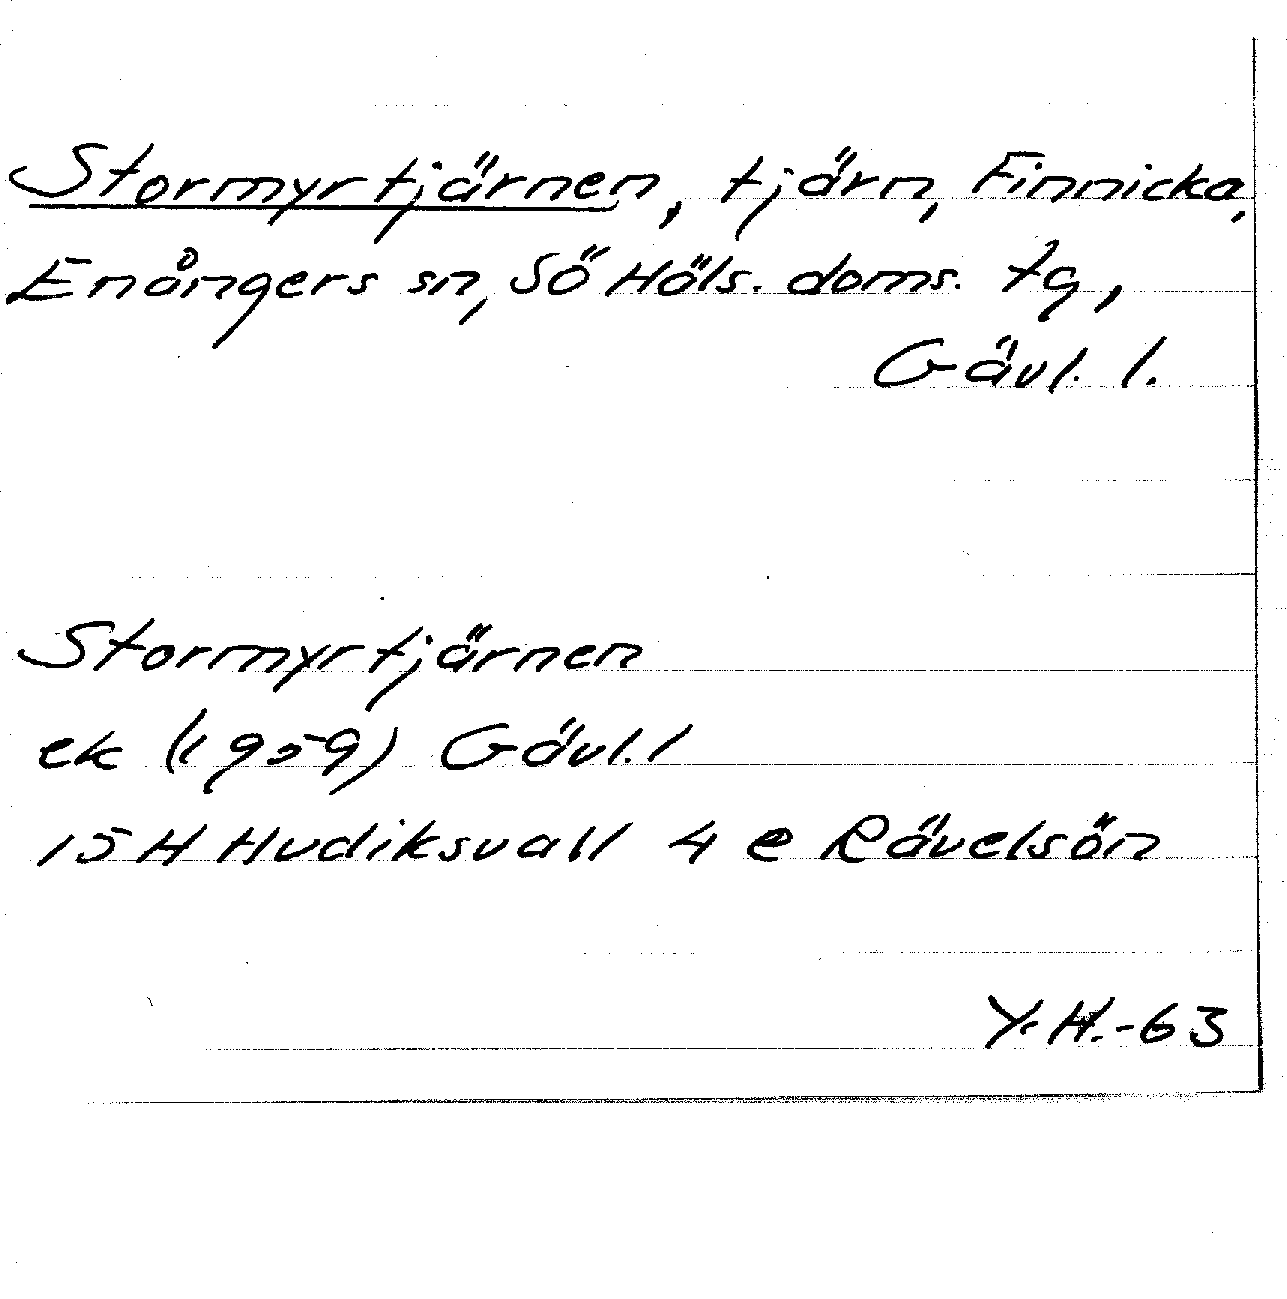 Stormyrtjärnen, tjärn, Finnicka,
Enångers sn, Sö Häls. doms. tg,
Gävl. l.
Stormyrtjärnen
ek (1959) Gävl. l
15 H Hudiksvall 4 e Rävelsön
Y. H. -63